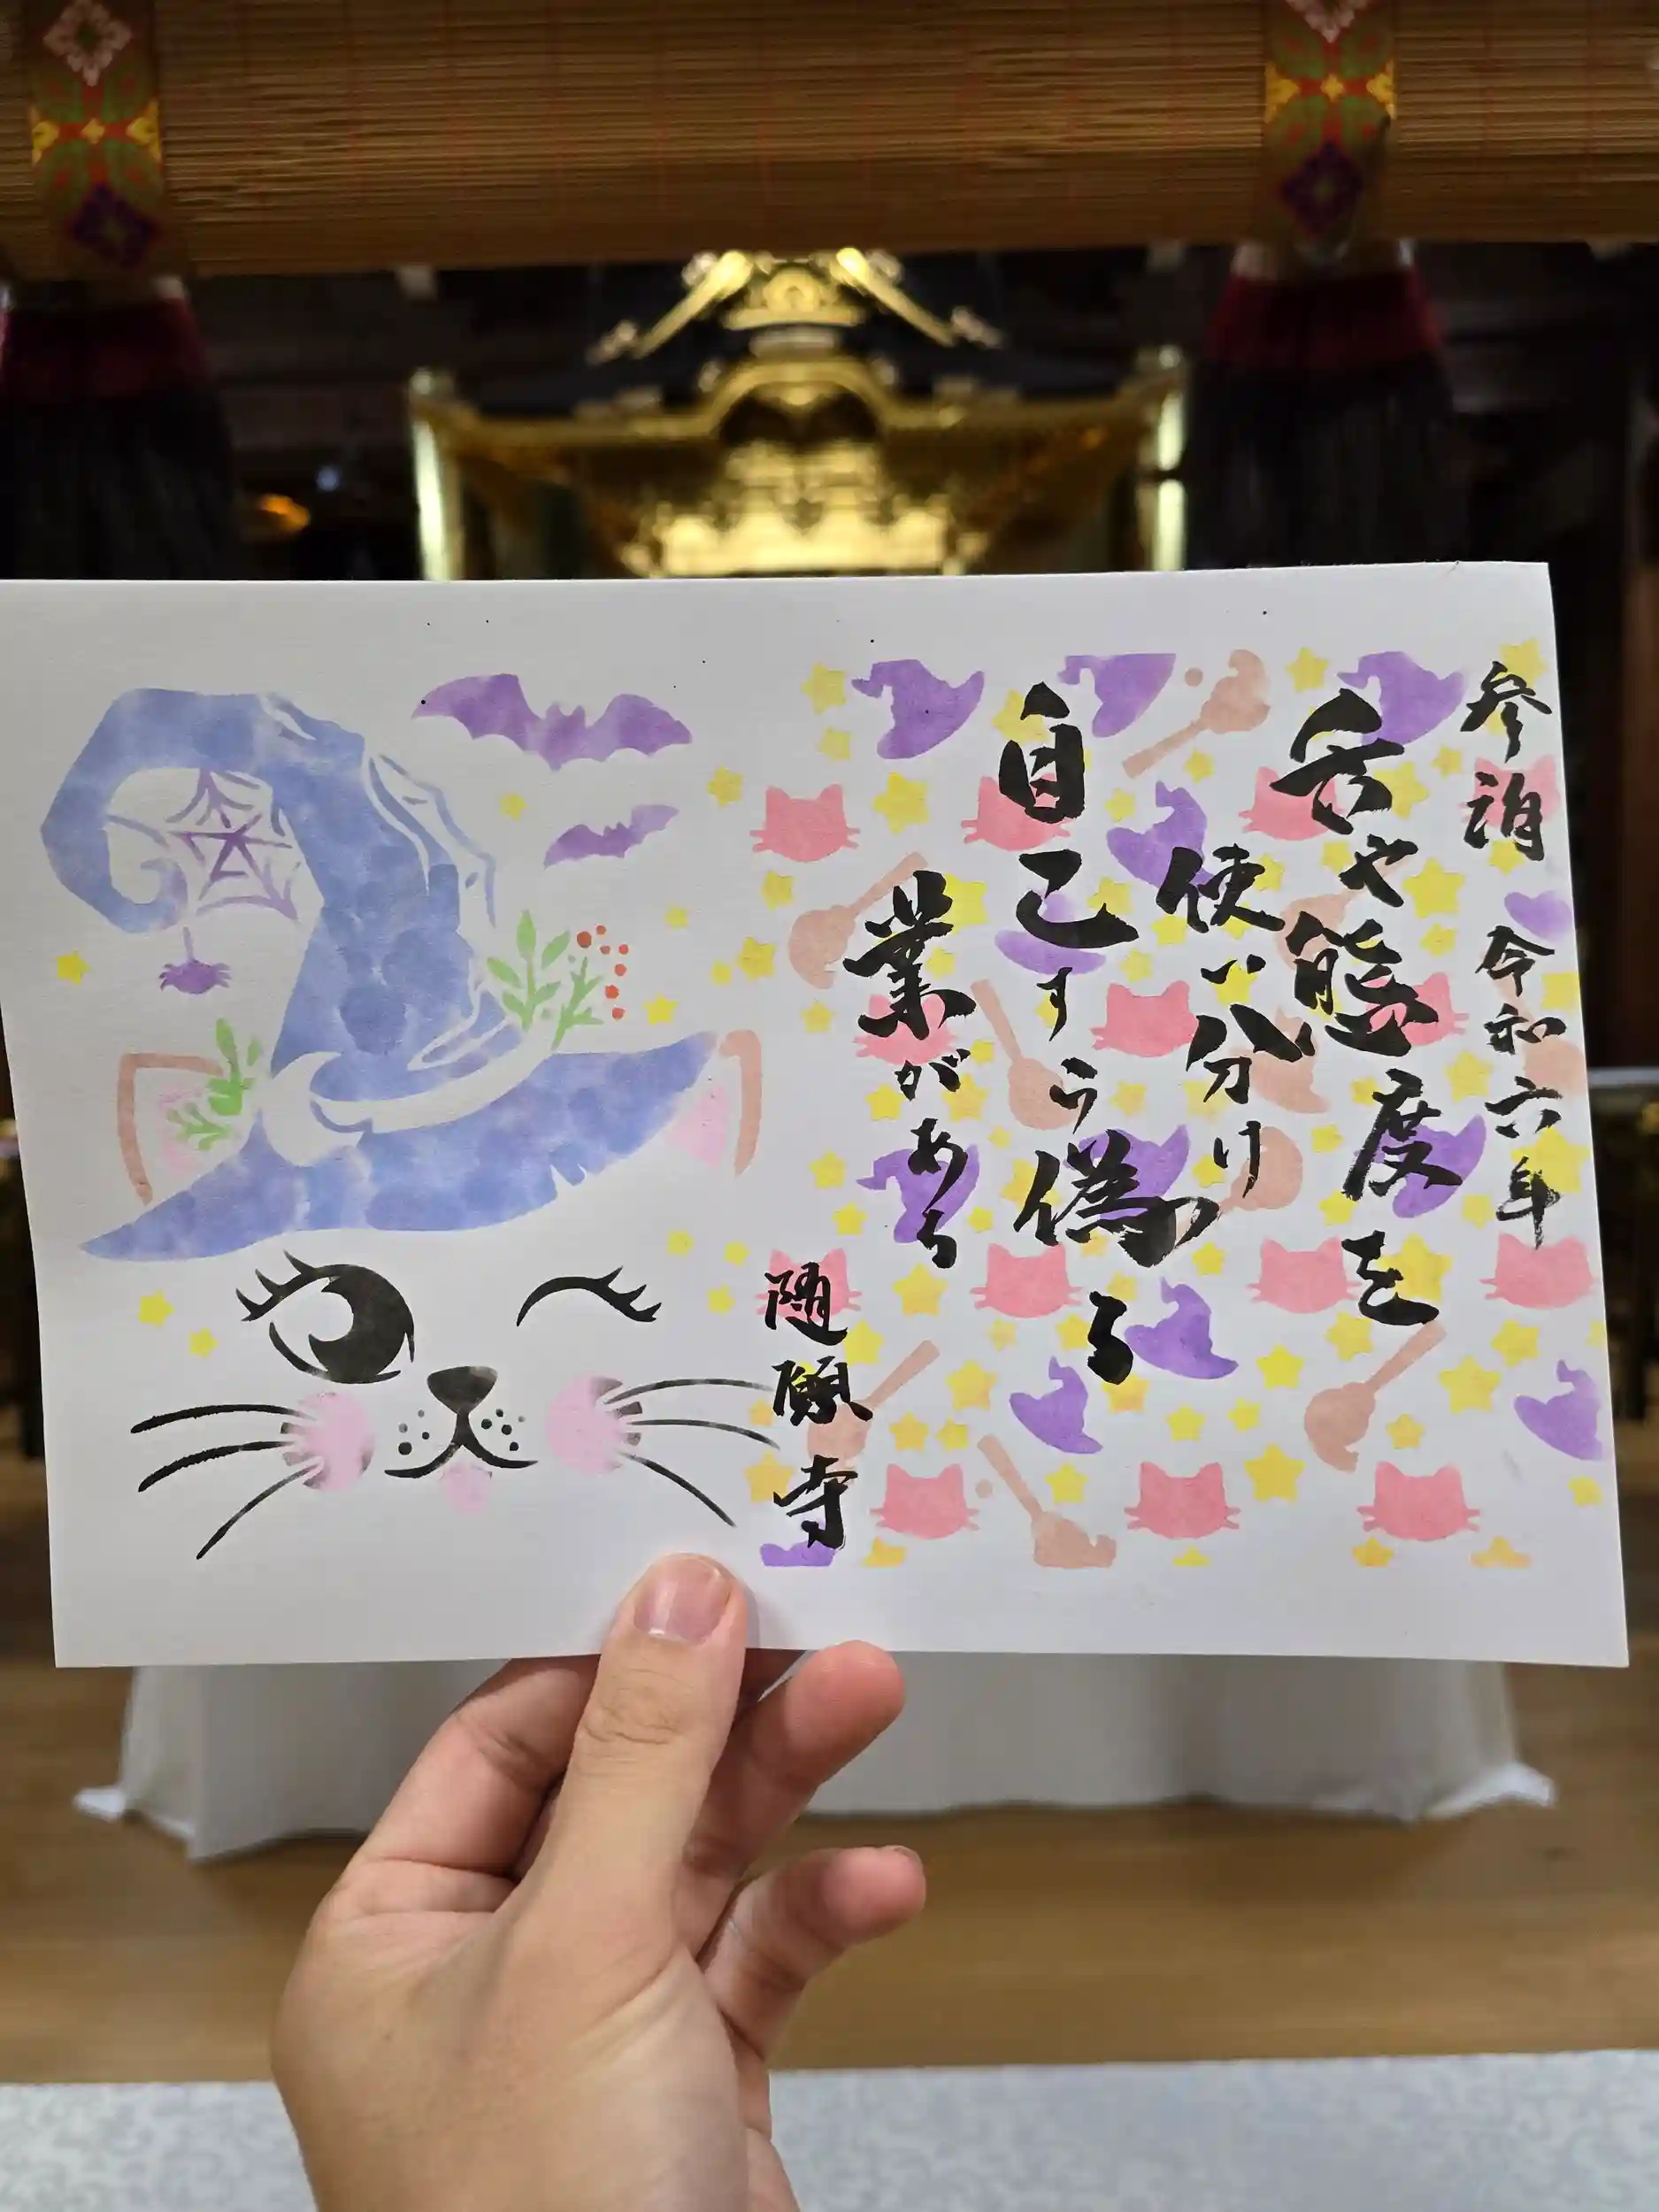 参詣　令和六年
舌や態度を
使い分け
自己すら偽る
業がある
随願寺